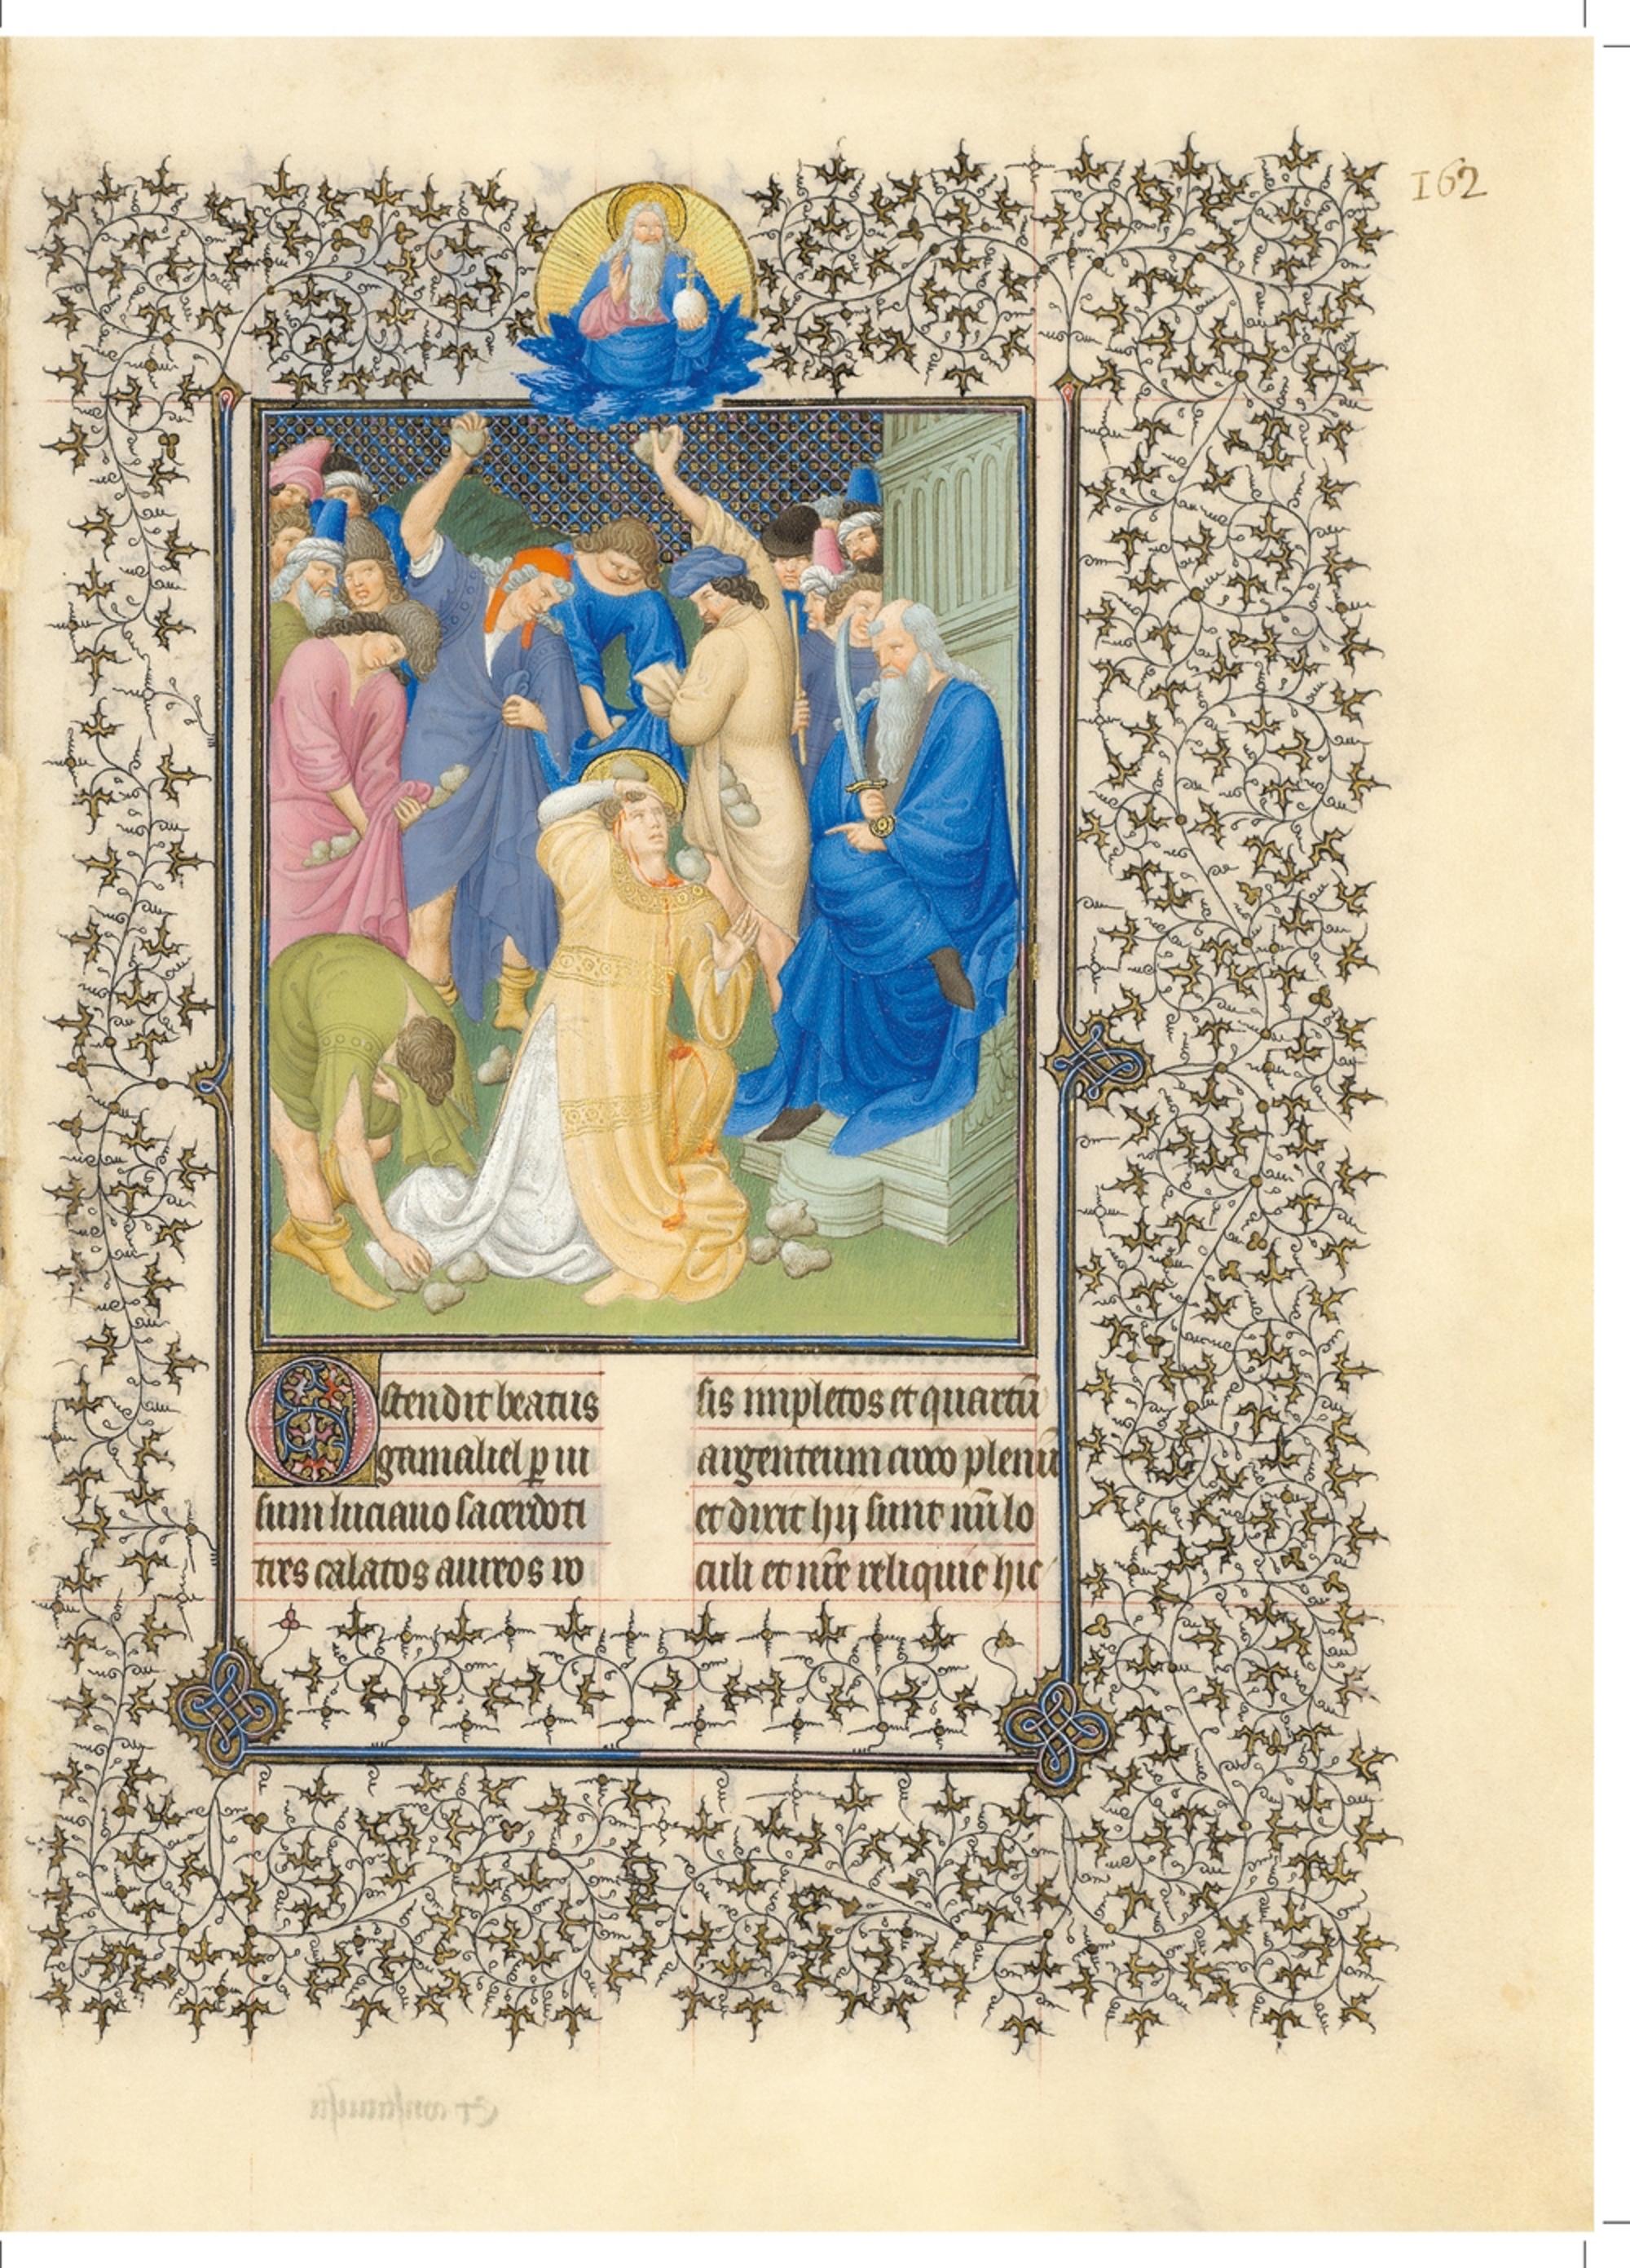 162
Ostendit beatus
gamaliel p̱ ui
sum luciano sacerdoti
tres calatos aureos ro
sis impletos et quartū
argenteum croco plenū
et dixit hij sunt nr̄i lo
culi et nr̄e reliquie hic